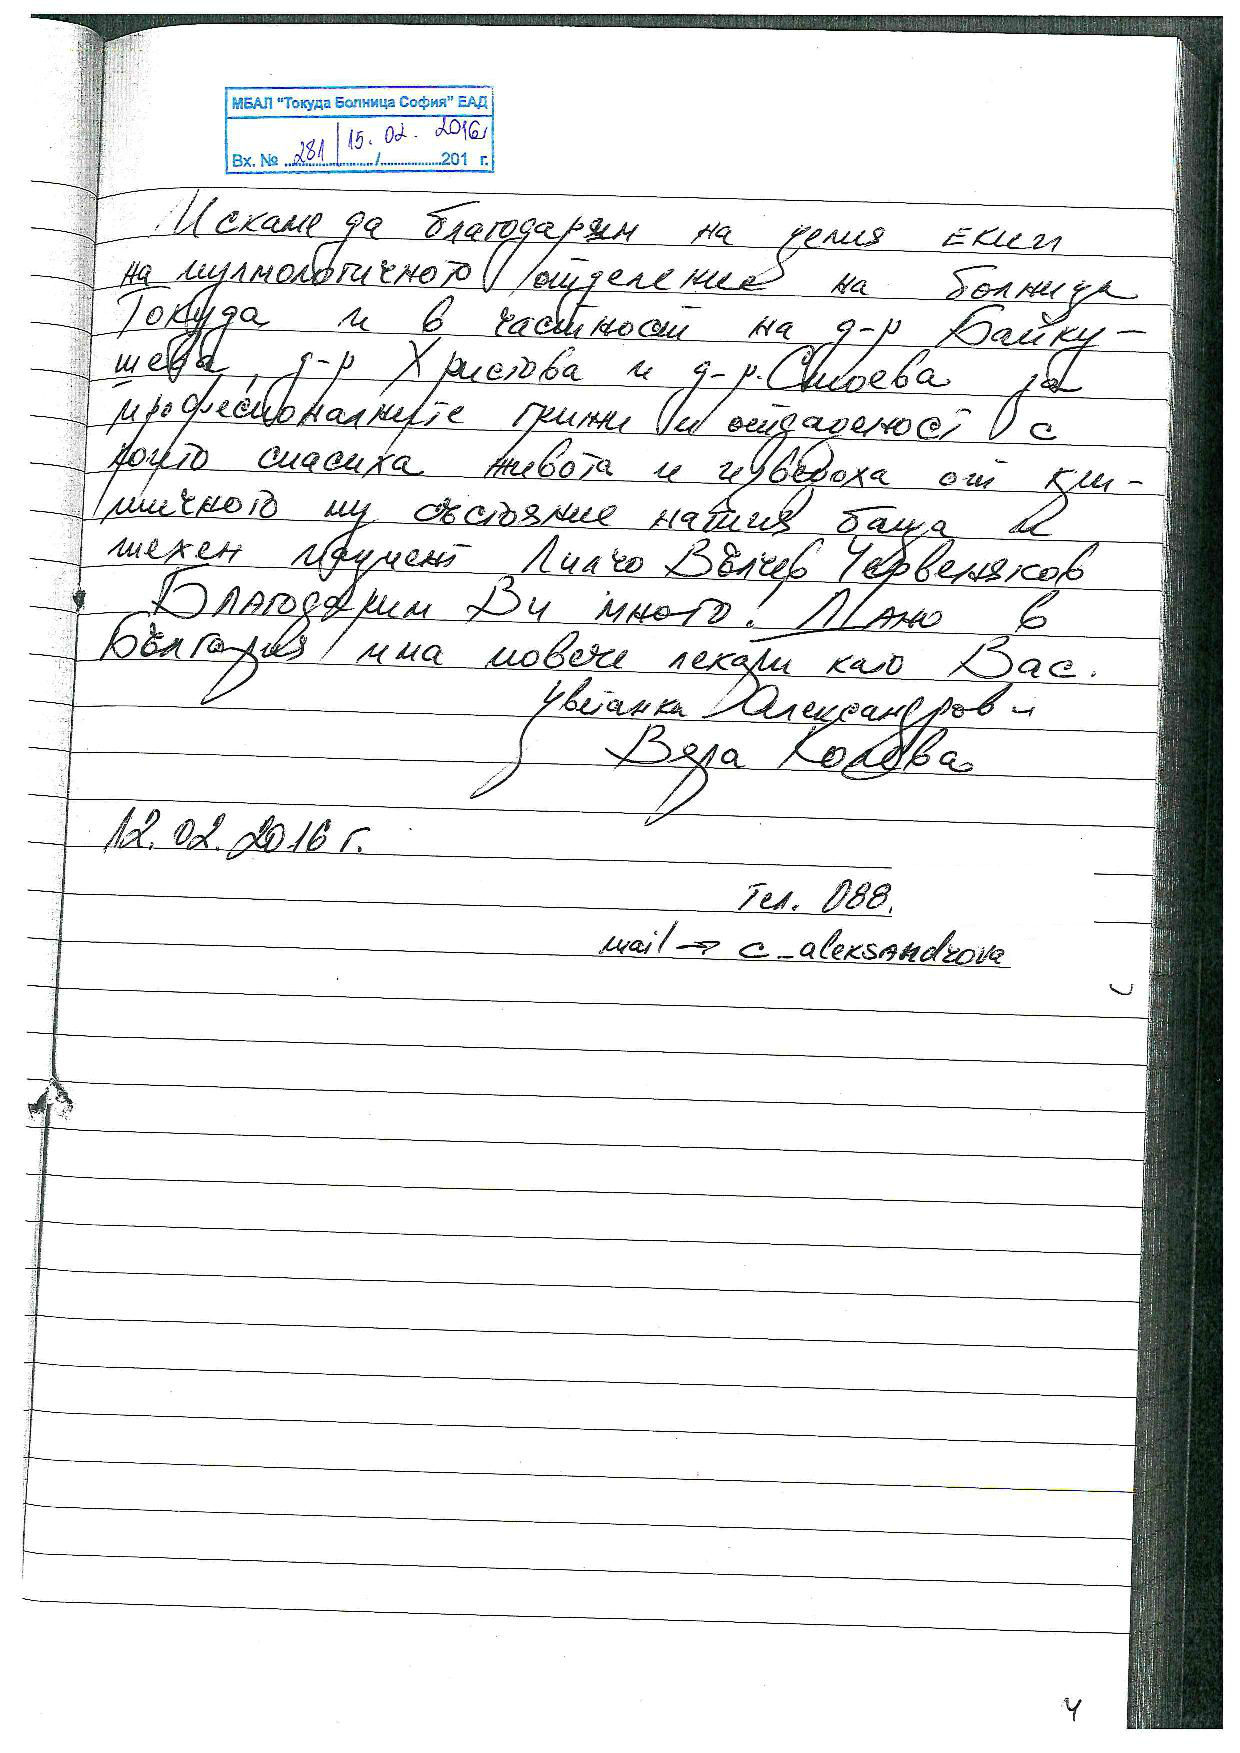 МБАЛ "Токуда Болница София" ЕАД
281 15.02. 2016
Вх. № ........................../..................201 г.
Искаме да благодарим на целия екип
на пулмологичното отделение на болница
Токуда и в частност на д-р Байку-
шева, д-р Христова и д-р. Стоева за
професионалните грижи и отдаденост с
които спасиха живота и изведоха от кри-
тичното му състояние нашия баща и
техен пациент Лилчо Вълчев Червеняков
Благодарим Ви много! Дано в
България има повече лекари като Вас.
Цветанка Александров-
Вяра Колева
12.02.2016 г.
Тел. 088.
mail → c_aleksandrova
4